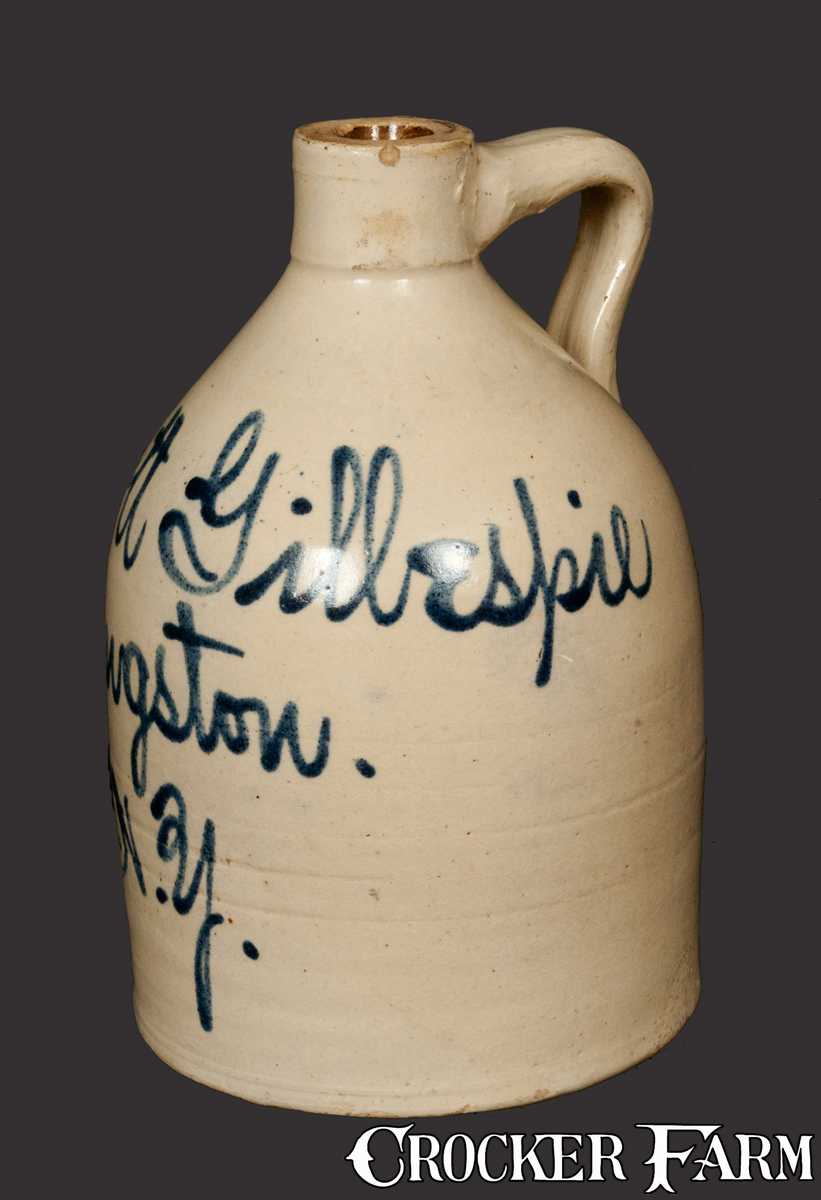 tt Gillespie
ngston.
N.Y.
CROCKER FARM